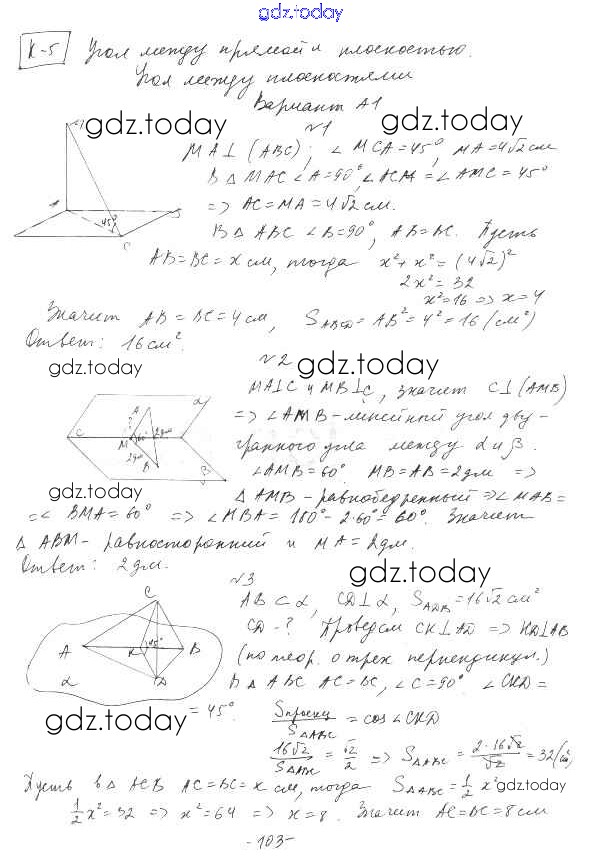 gdz.today
К-5 Угол между прямой и плоскостью.
Угол между плоскостями
Вариант А1
gdz.today gdz.today
№1
MA⊥(ABC); ∠MCA=45°, MA=4√2 см
В △MAC ∠A=90°, ∠ACM=∠AMC=45°
=> AC=MA=4√2 см.
В △ABC ∠B=90°, AB=BC. Пусть
AB=BC=x см, тогда x²+x²=(4√2)²
2x²=32
x²=16 => x=4
Значит AB=BC=4 см, S_ABCD=AB²=4²=16 (см²)
Ответ: 16 см².
№2
gdz.today gdz.today
MA⊥C и MB⊥C, значит C⊥(AMB)
=> ∠AMB-линейный угол дву-
гранного угла между α и β.
∠AMB=60° MB=AB=2дм =>
gdz.today
△AMB-равнобедренный => ∠MAB=
=∠BMA=60° => ∠MBA=180°-2·60°=60°. Значит
△ABM-равносторонний и MA=2дм.
Ответ: 2дм.
№3
gdz.today
AB⊂α, CD⊥α, S_ADB=16√2 см²
CD-? Проведем CK⊥AD => KD⊥AB
(по теор. о трех перпендикул.)
В △ABC AC=BC, ∠C=90° ∠CKD=
gdz.today
=45°. Sпроекц/S△ABC = cos∠CKD
16√2/S△ABC = √2/2 => S△ABC = 2·16√2/√2 = 32(см²)
Пусть в △ACB AC=BC=x см, тогда S△ABC=½x²
gdz.today
½x²=32 => x²=64 => x=8. Значит AC=BC=8см
-103-